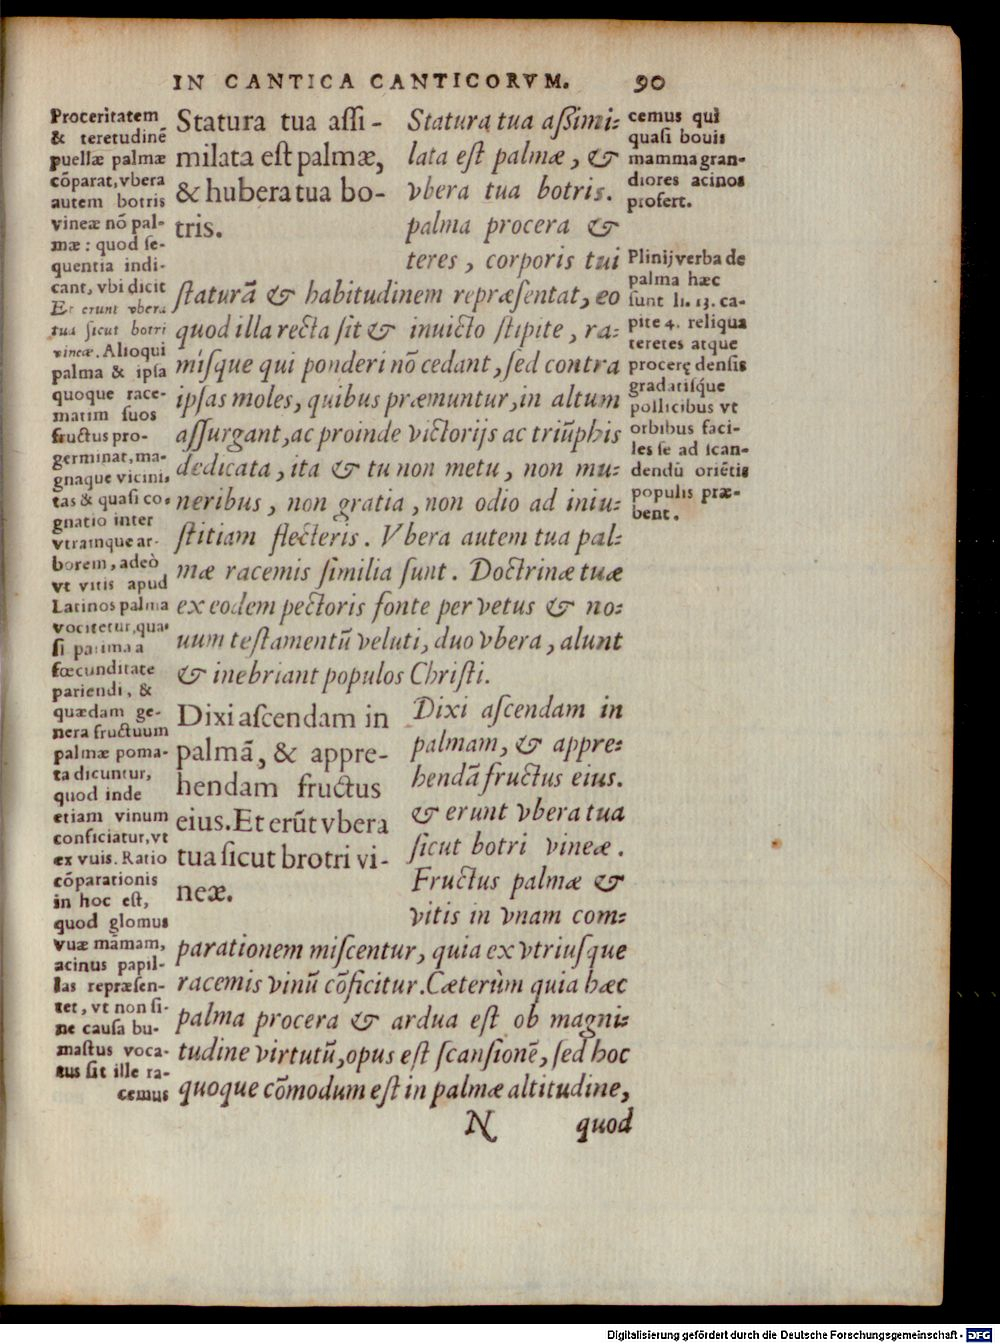 IN CANTICA CANTICORVM. 90
Proceritatem
& teretudinē
puellæ palmæ
cōparat, vbera
autem botris
vineæ nō pal-
mæ: quod se-
quentia indi-
cant, vbi dicit
Et erunt vbera
tua sicut botri
vineæ. Alioqui
palma & ipsa
quoque race-
matim suos
fructus pro-
germinat, ma-
gnaque vicini-
tas & quasi co-
gnatio inter
vtramque ar-
borem, adeò
vt vitis apud
Latinos palma
vocitetur, qua-
si parima a
fœcunditate
pariendi, &
quædam ge-
nera fructuum
palmæ poma-
ta dicuntur,
quod inde
etiam vinum
conficiatur, vt
ex vuis. Ratio
cōparationis
in hoc est,
quod glomus
vuæ māmam,
acinus papil-
las repræsen-
tet, vt non si-
ne causa bu-
mastus voca-
tus sit ille ra-
cemus
Statura tua assi-
milata est palmæ,
& hubera tua bo-
tris.
Statura tua assimi-
lata est palmæ, &
vbera tua botris.
palma procera &
teres, corporis tui
staturā & habitudinem repræsentat, eo
quod illa recta sit & inuicto stipite, ra-
misque qui ponderi nō cedant, sed contra
ipsas moles, quibus præmuntur, in altum
assurgant, ac proinde victorijs ac triūphis
dedicata, ita & tu non metu, non mu-
neribus, non gratia, non odio ad iniu-
stitiam flecteris. Vbera autem tua pal-
mæ racemis similia sunt. Doctrinæ tuæ
ex eodem pectoris fonte per vetus & no-
uum testamentū veluti, duo vbera, alunt
& inebriant populos Christi.
Dixi ascendam in
palmā, & appre-
hendam fructus
eius. Et erūt vbera
tua sicut brotri vi-
neæ.
Dixi ascendam in
palmam, & appre-
hendā fructus eius.
& erunt vbera tua
sicut botri vineæ.
Fructus palmæ &
vitis in vnam com-
parationem miscentur, quia ex vtriusque
racemis vinū cōficitur. Cæterùm quia hæc
palma procera & ardua est ob magni-
tudine virtutū, opus est scansionē, sed hoc
quoque cōmodum est in palmæ altitudine,
N quod
cemus qui
quasi bouis
mamma gran-
diores acinos
profert.
Plinij verba de
palma hæc
sunt li. 13. ca-
pite 4. reliqua
teretes atque
procerę densis
gradatisque
pollicibus vt
orbibus faci-
les se ad scan-
dendū oriētis
populis præ-
bent.
Digitalisierung gefördert durch die Deutsche Forschungsgemeinschaft - DFG